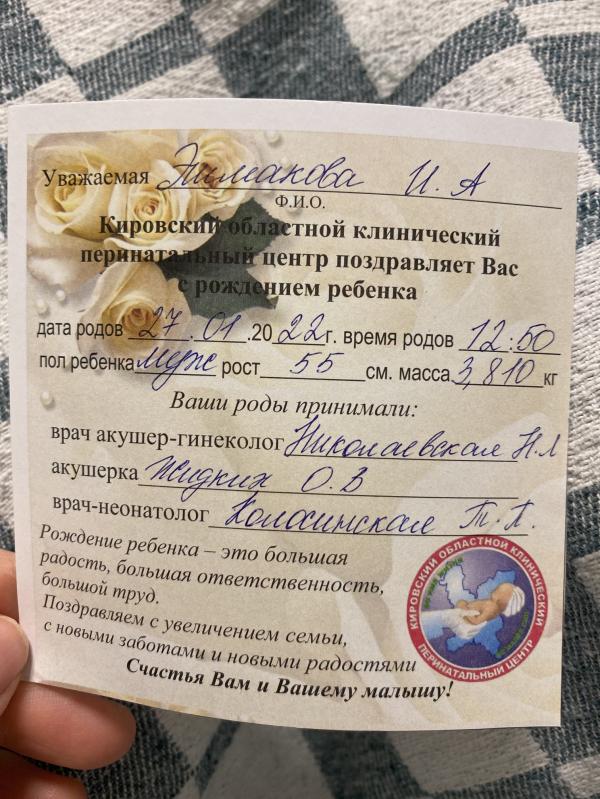 Уважаемая Эймакова И. А
Ф.И.О.
Кировский областной клинический
перинатальный центр поздравляет Вас
с рождением ребенка
дата родов 27.01.2022г. время родов 12:50
пол ребенка муж рост 55 см. масса 3,810 кг
Ваши роды принимали:
врач акушер-гинеколог Николаевская Н.Л
акушерка Жидких О.В
врач-неонатолог Колосинская Т.П.
Рождение ребенка – это большая
радость, большая ответственность,
большой труд.
Поздравляем с увеличением семьи,
с новыми заботами и новыми радостями
Счастья Вам и Вашему малышу!
КИРОВСКИЙ ОБЛАСТНОЙ КЛИНИЧЕСКИЙ
ПЕРИНАТАЛЬНЫЙ ЦЕНТР